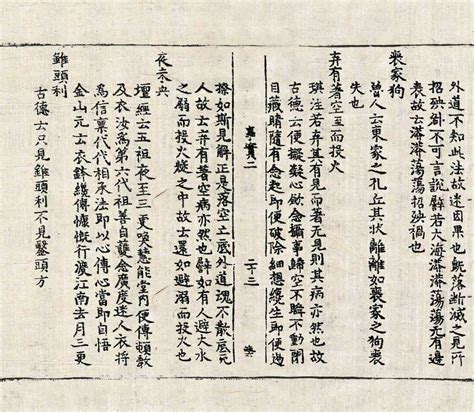 外道不知此法故迷因果也皈落斷滅之見所
招殃咎不可言說譬若大海漭漭蕩蕩无有邊
表故云漭漭蕩蕩招殃禍也
喪家狗
魯人云東家之孔丘其狀離離如喪家之狗喪
失也
弃有著空至而投火
琪注若弃其有見而著无見則其病亦然也故
古德云便擬凝心歛念攝事歸空不瞬不動閉
目藏睛隨有念起即便破除細想纔生即便遏
二
二十三
捺如斯見解正是落空亡底外道魂不散底死
人故云弃有著空病亦然也譬如有人避大水
之溺而投火燄之中故云還如避溺而投火也
夜未央
壇經云五祖夜至三更喚慧能堂內便傳頓教
及衣汝為第六代祖善自護念廣度迷人衣將
為信稟代代相承法即以心傳心當即自悟
金山元云衣鉢纔傳慷慨行渡江南去月三更
錐頭利
古德云只見錐頭利不見鑿頭方